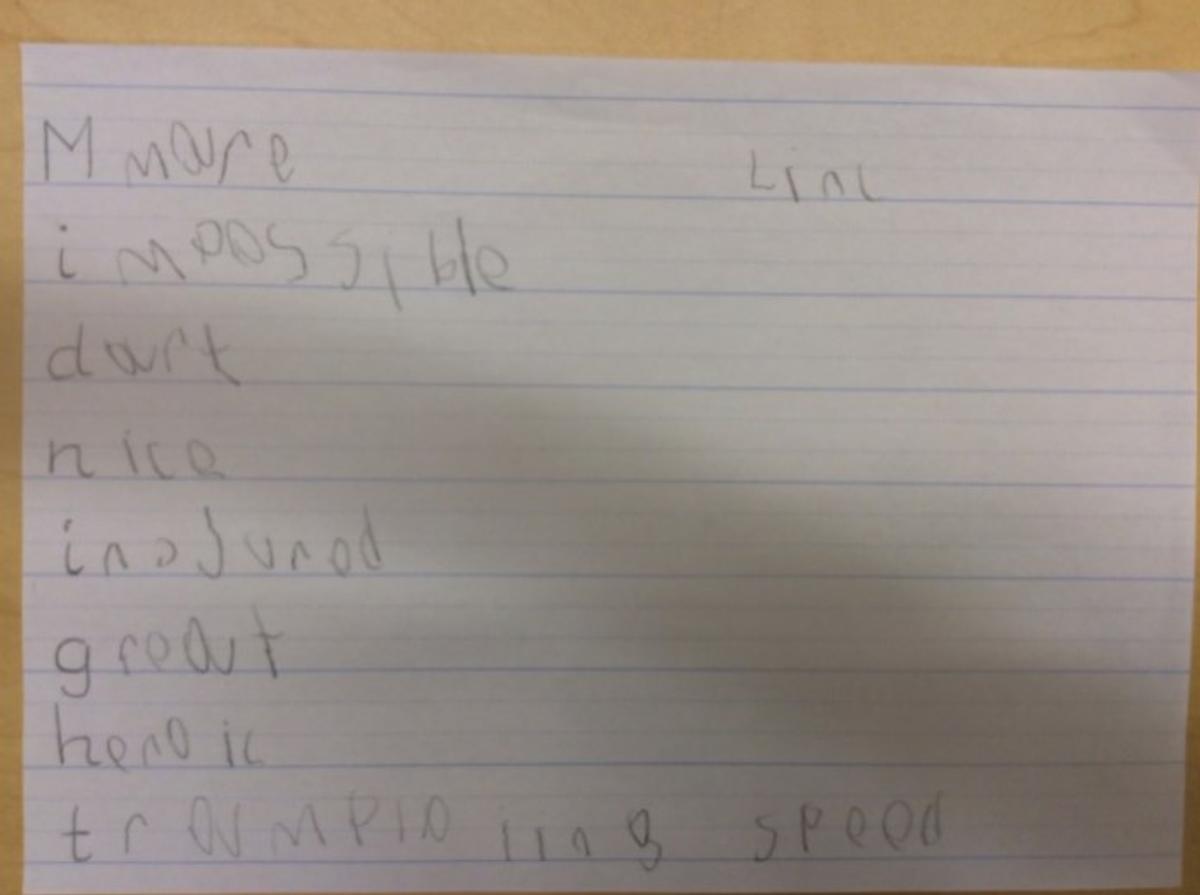 M mare Linc
impossible
dart
nice
inojured
great
heroic
trampleling speed